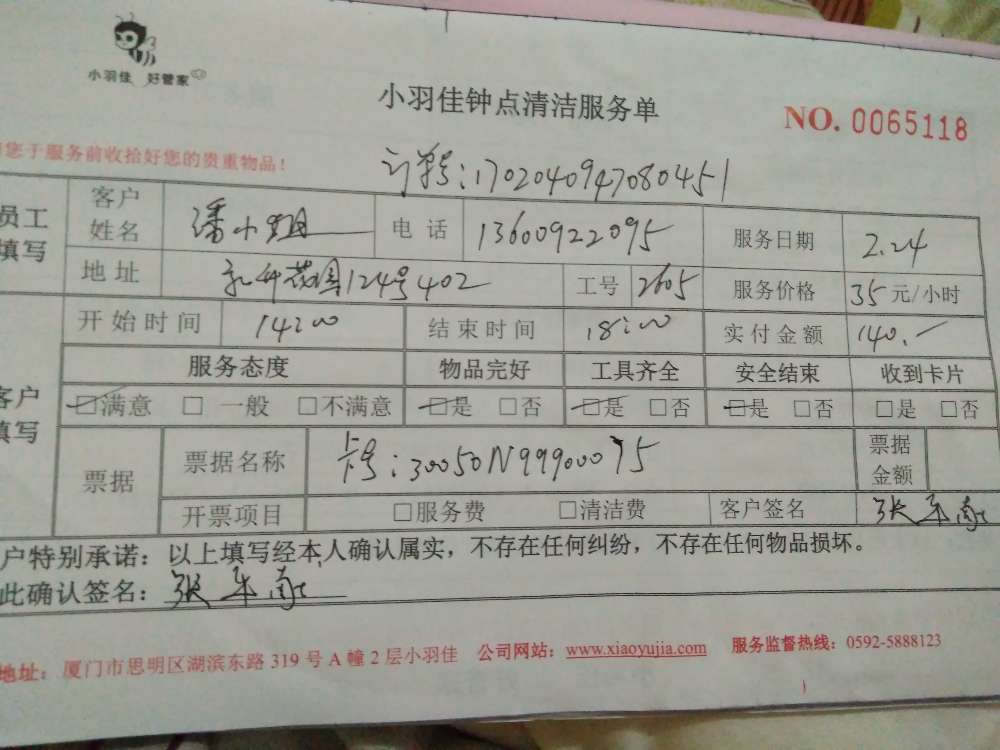 小羽佳 好管家
小羽佳钟点清洁服务单
NO. 0065118
您于服务前收拾好您的贵重物品！
订单号:1702040947080451
员工填写
客户姓名 潘小姐 电话 13600922095 服务日期 2.24
地址 花园124号402 工号 2605 服务价格 35元/小时
客户填写
开始时间 14:00 结束时间 18:00 实付金额 140.-
服务态度 物品完好 工具齐全 安全结束 收到卡片
☑满意 □一般 □不满意 ☑是 □否 ☑是 □否 ☑是 □否 □是 □否
票据 票据名称 卡号:30050N99900075 票据金额
开票项目 □服务费 □清洁费 客户签名 张
户特别承诺：以上填写经本人确认属实，不存在任何纠纷，不存在任何物品损坏。
此确认签名：张
地址：厦门市思明区湖滨东路319号A幢2层小羽佳 公司网站：www.xiaoyujia.com 服务监督热线：0592-5888123